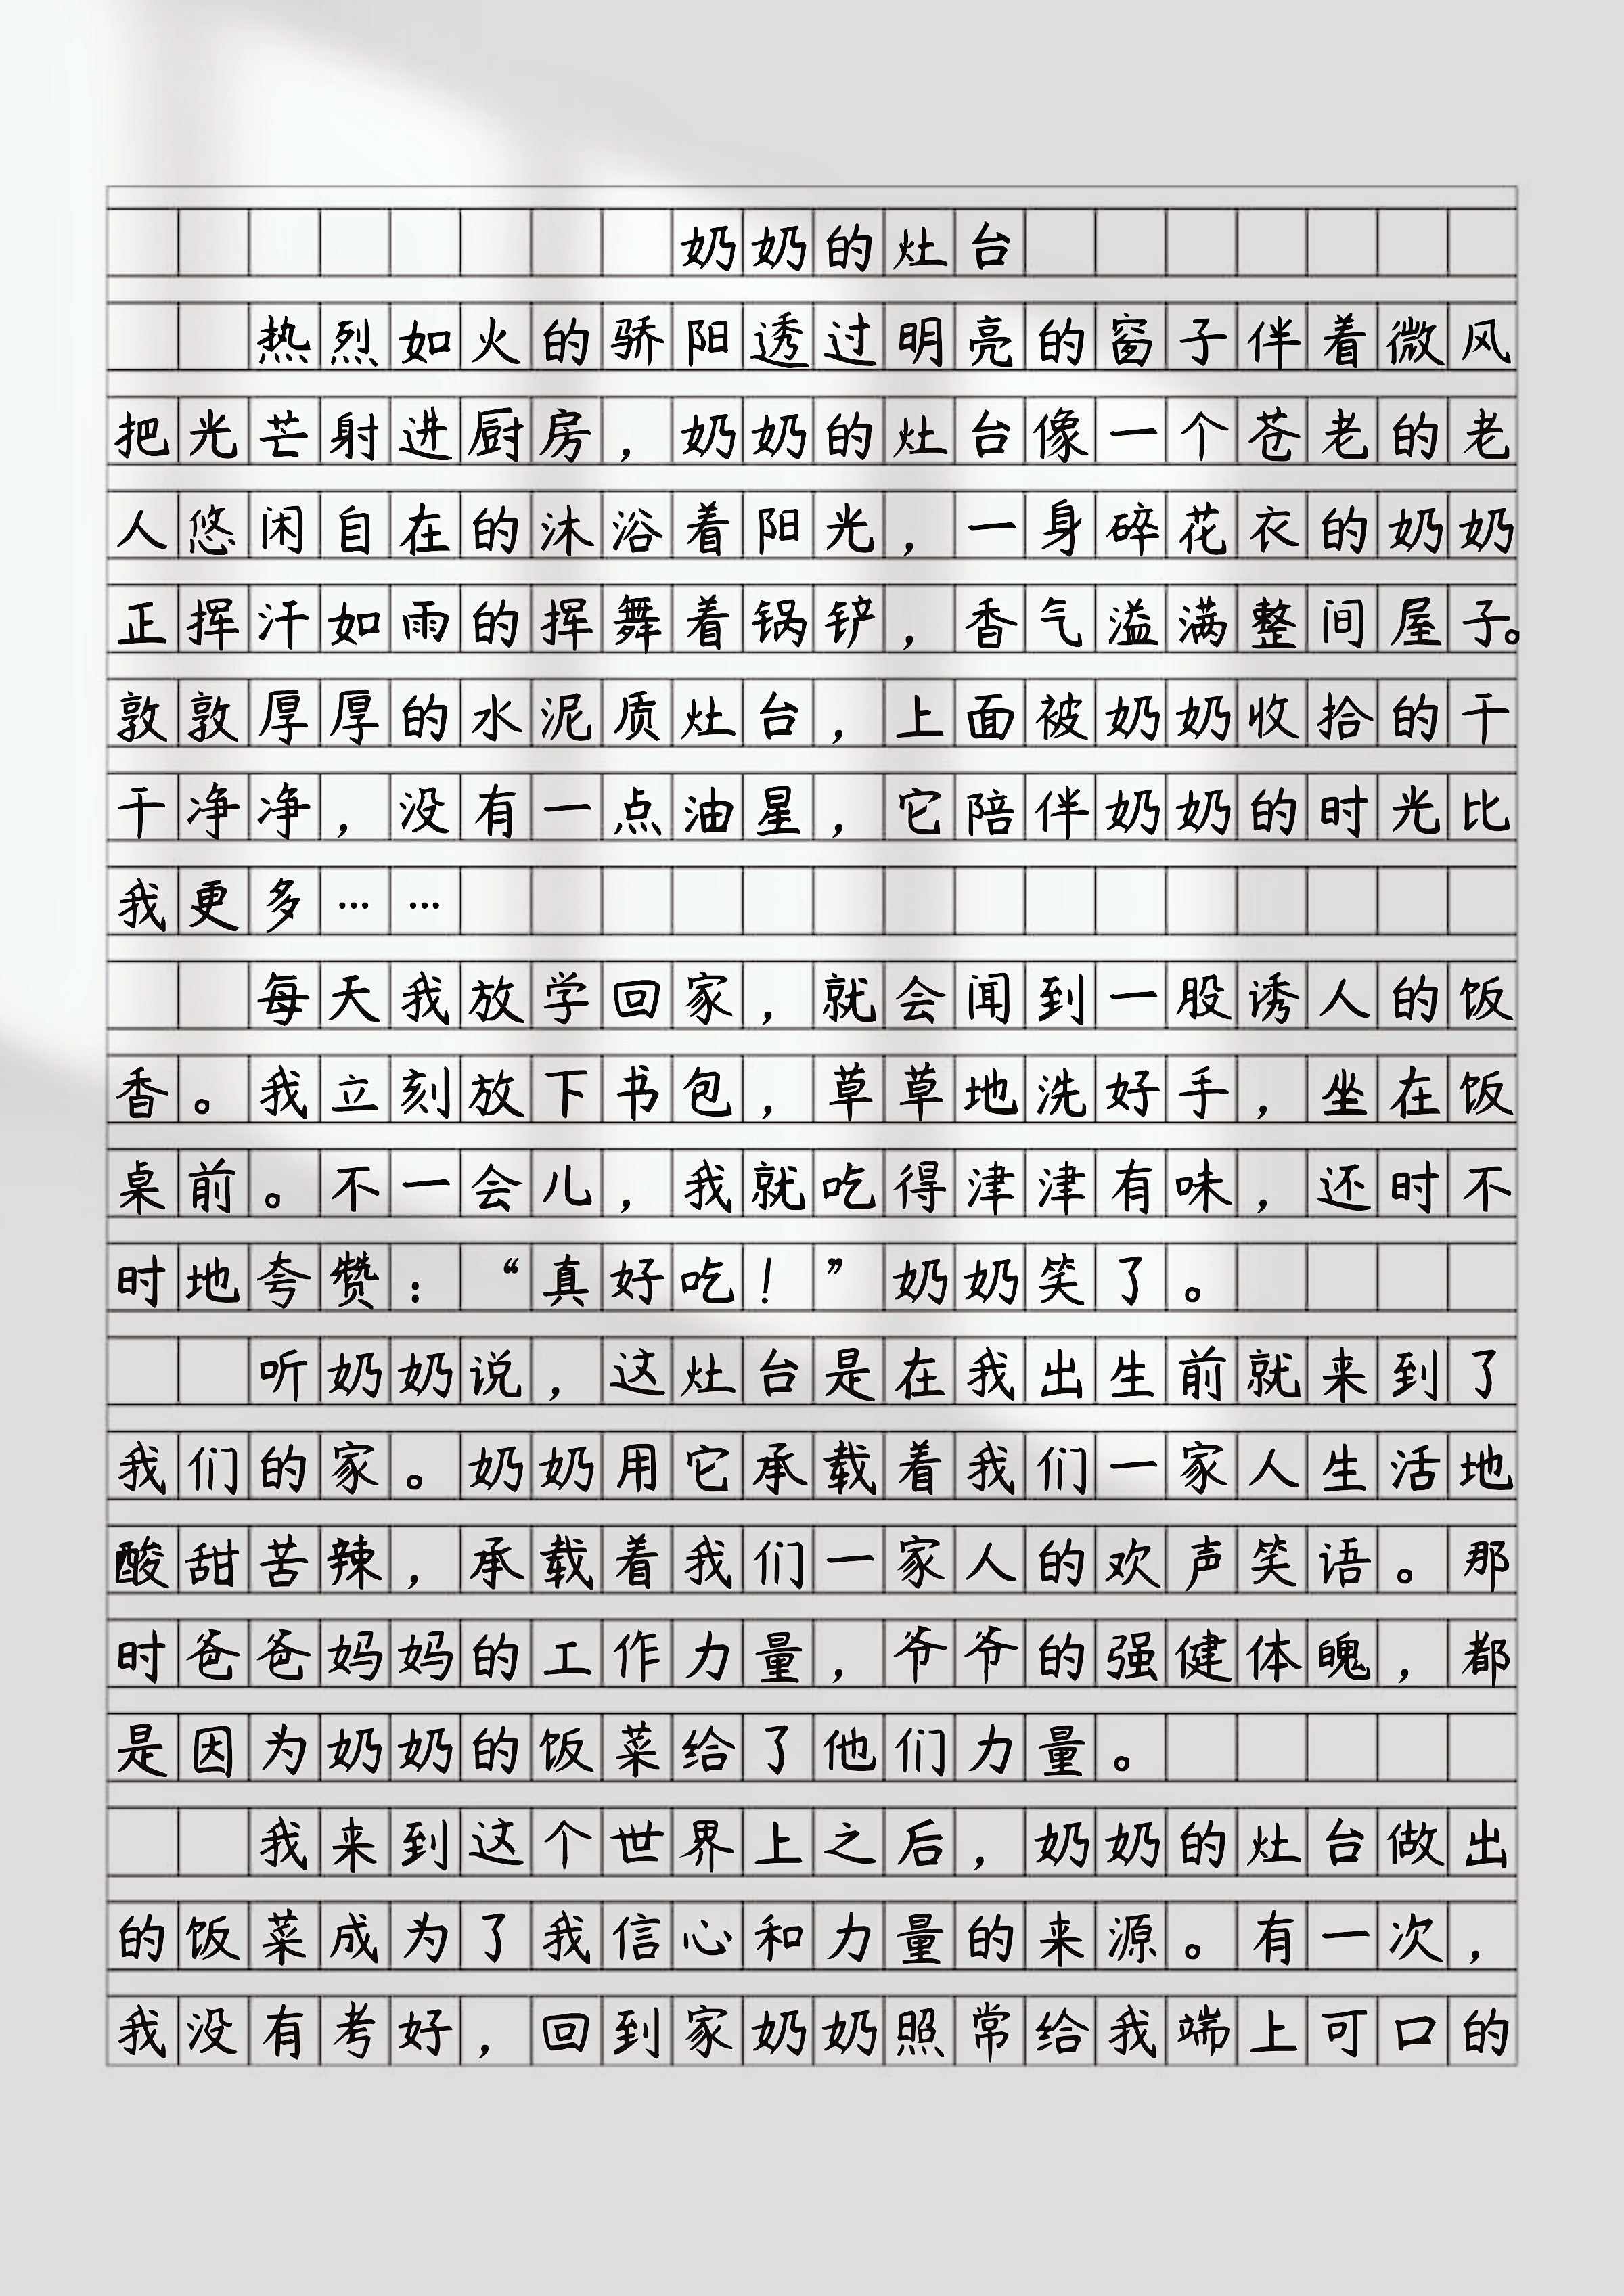 奶奶的灶台
热烈如火的骄阳透过明亮的窗子伴着微风
把光芒射进厨房，奶奶的灶台像一个苍老的老
人悠闲自在的沐浴着阳光，一身碎花衣的奶奶
正挥汗如雨的挥舞着锅铲，香气溢满整间屋子。
敦敦厚厚的水泥质灶台，上面被奶奶收拾的干
干净净，没有一点油星，它陪伴奶奶的时光比
我更多……
每天我放学回家，就会闻到一股诱人的饭
香。我立刻放下书包，草草地洗好手，坐在饭
桌前。不一会儿，我就吃得津津有味，还时不
时地夸赞：“真好吃！”奶奶笑了。
听奶奶说，这灶台是在我出生前就来到了
我们的家。奶奶用它承载着我们一家人生活地
酸甜苦辣，承载着我们一家人的欢声笑语。那
时爸爸妈妈的工作力量，爷爷的强健体魄，都
是因为奶奶的饭菜给了他们力量。
我来到这个世界上之后，奶奶的灶台做出
的饭菜成为了我信心和力量的来源。有一次，
我没有考好，回到家奶奶照常给我端上可口的